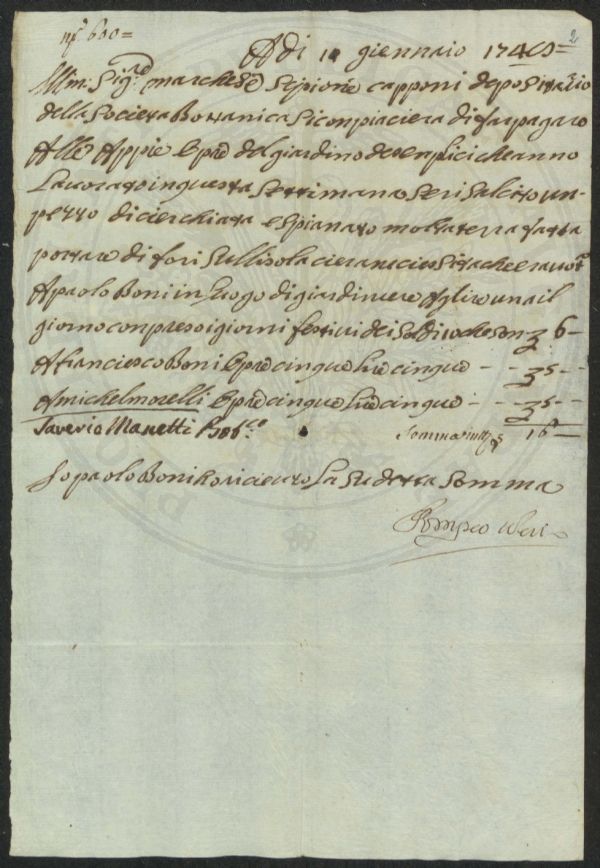 n.° 600=
2
A di 10 giennaio 1749=
Illm: Sig.re marchese Scipione capponi depositario
della Societa Botanica Si conpiaciera di far pagare
Alle Appie Opre del giardino de senplici che anno
Lavorato in questa Settimana
pezzo di cierchiata e spianato molta terra fatta
portare di fori Sull isola
A paolo Boni in Luogo di giardiniere A lire una il
giorno conpreso i giorni festivi dei Soldi che son 6-
A franciesco Boni Opre cinque Lire cinque - - 5 - -
A michel morelli Opre cinque Lire cinque - - 5 - -
Saverio Manetti
Somma in tt.o 16 -
Io paolo Boni ho ricieuto La Sudetta Somma
Pompeo Neri